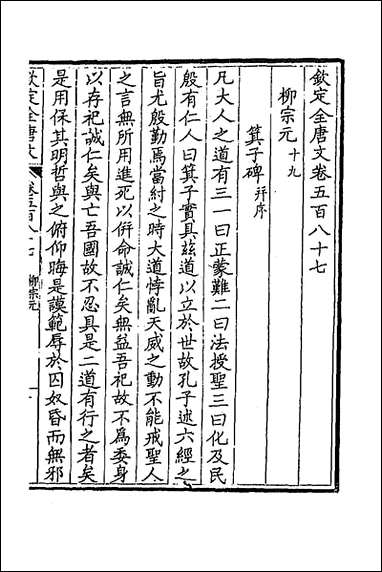 欽定全唐文卷五百八十七
柳宗元十九
箕子碑并序
凡大人之道有三一曰正蒙難二曰法授聖三曰化及民
殷有仁人曰箕子實具茲道以立於世故孔子述六經之
旨尤殷勤焉當紂之時大道悖亂天威之動不能戒聖人
之言無所用進死以併命誠仁矣無益吾祀故不爲委身
以存祀誠仁矣與亡吾國故不忍具是二道有行之者矣
是用保其明哲與之俯仰晦是謨範辱於囚奴昏而無邪
欽定全唐文 卷五百八十七 柳宗元 一